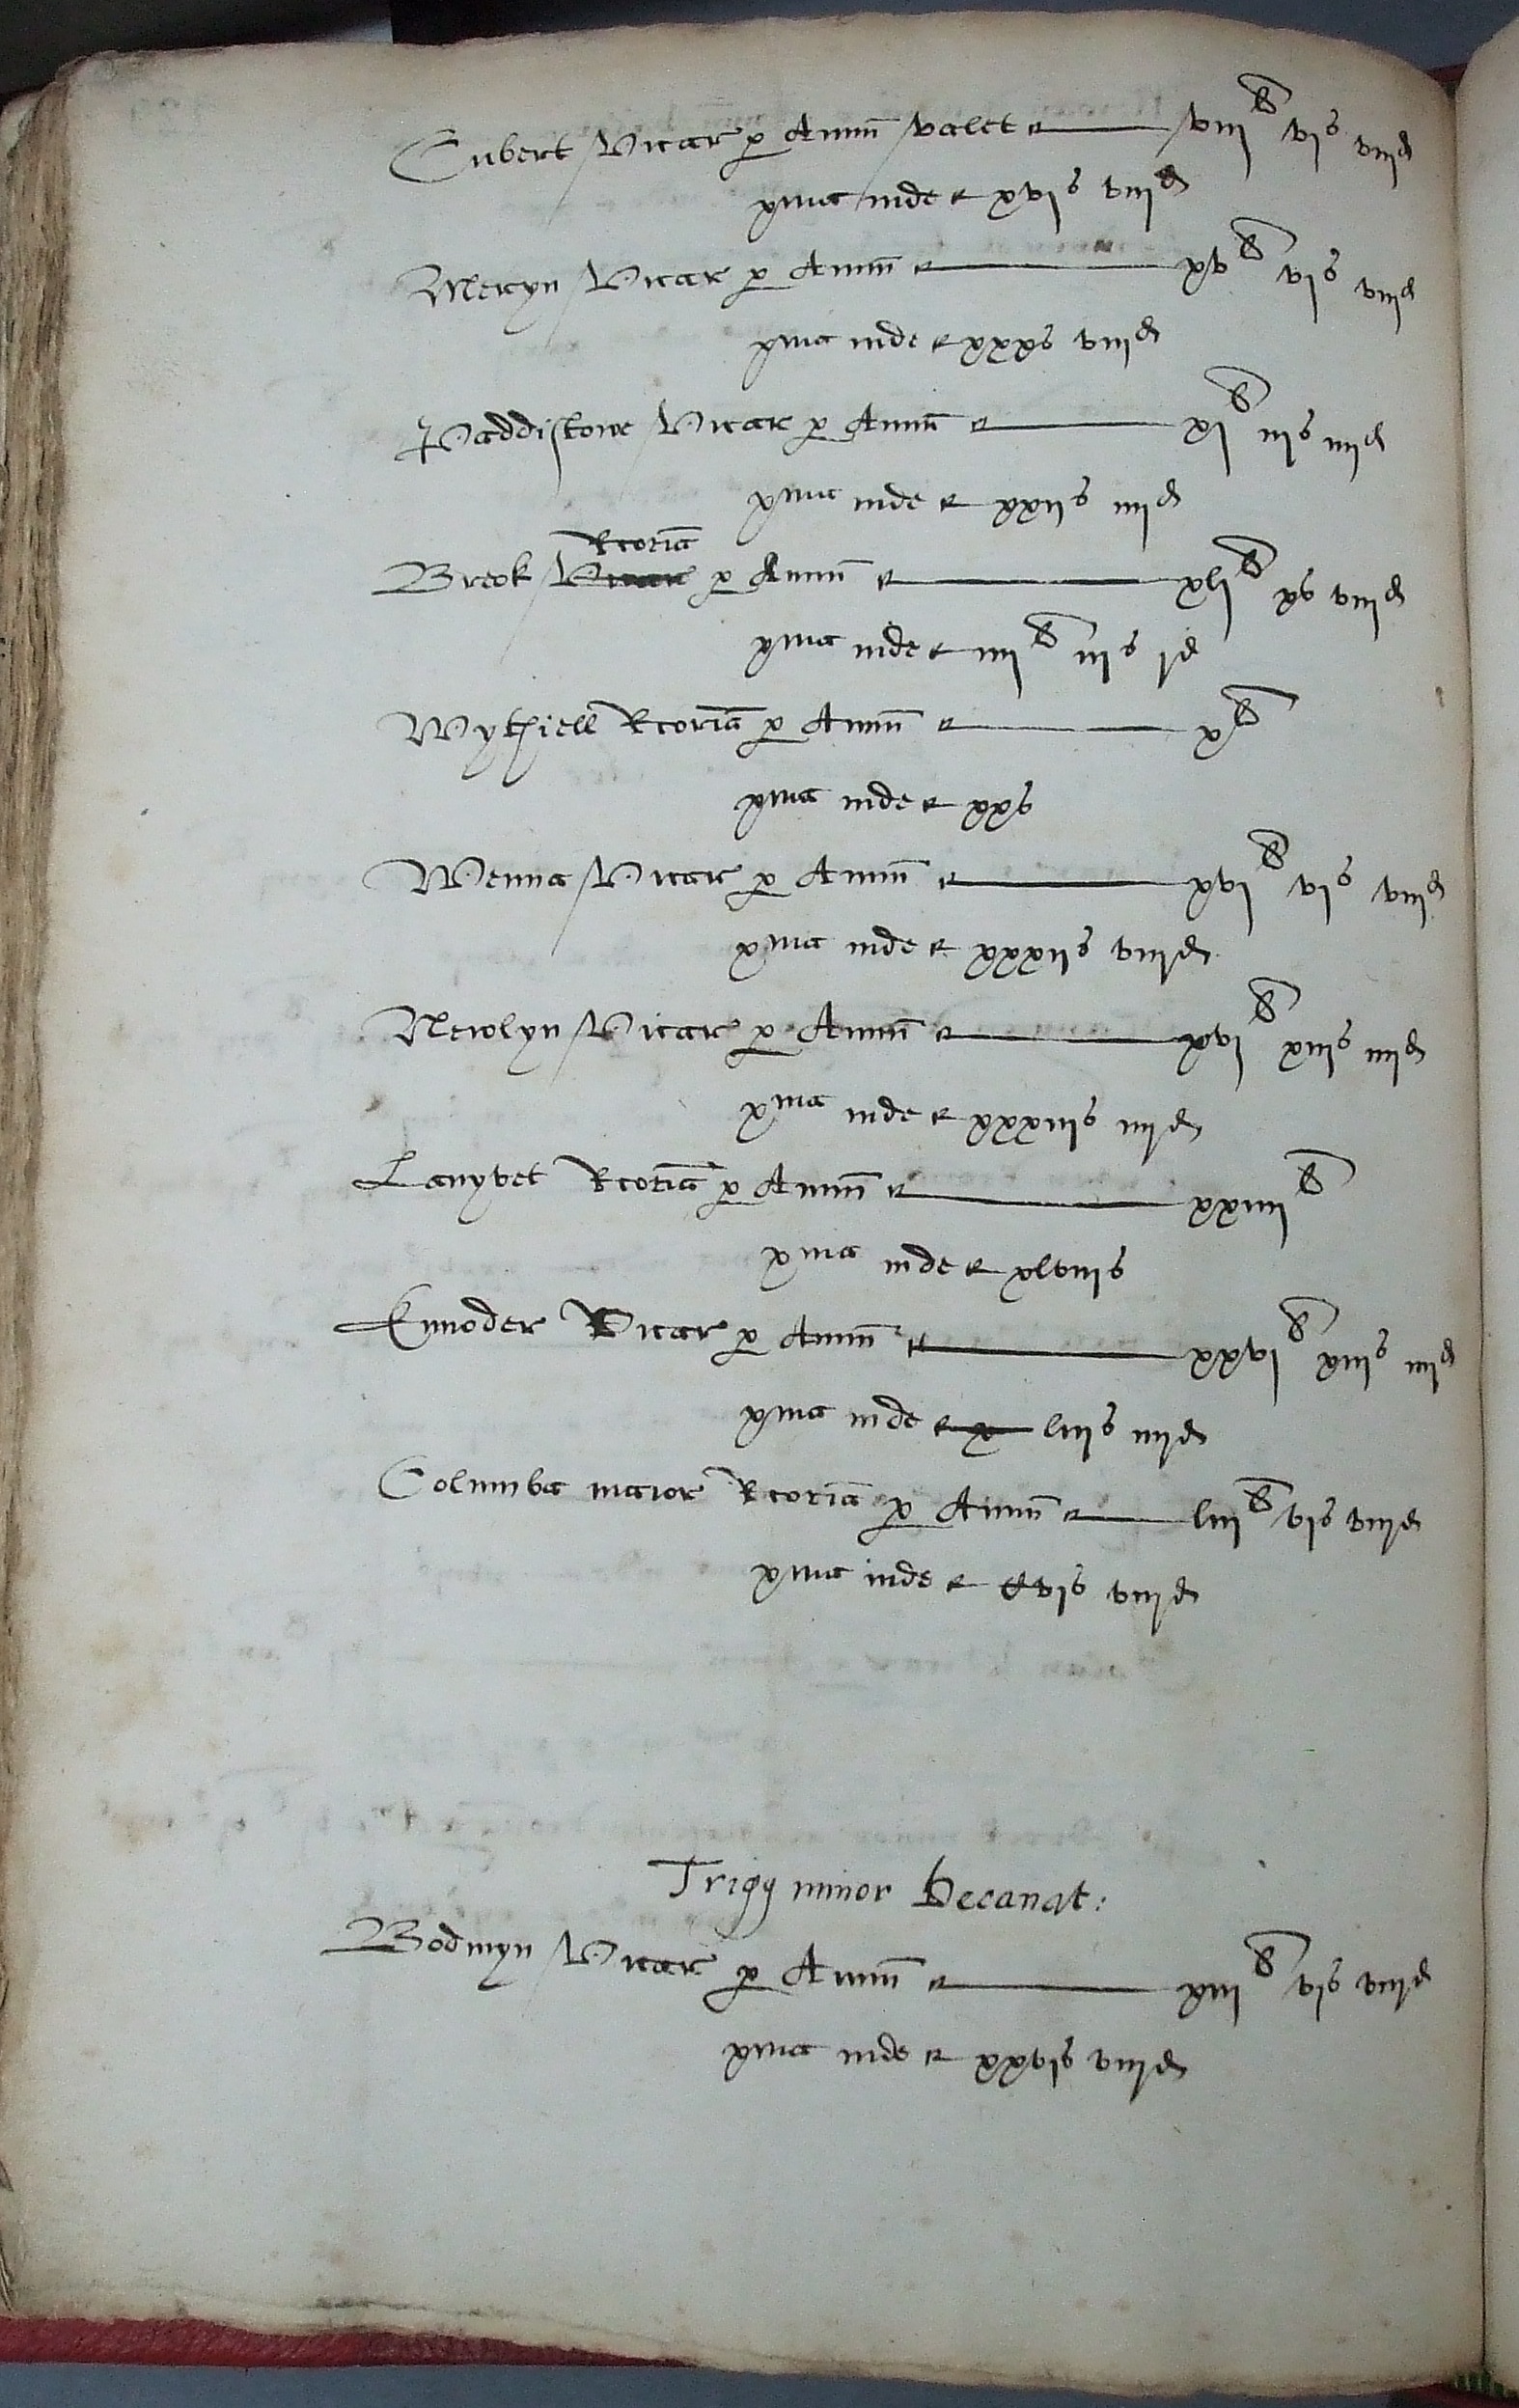 Cubert Vicar p Annu valet viij li vj s viij d
xma inde xvj s viij d
Meryn Vicar p Annu xv li vj s viij d
xma inde xxx s viij d
Paddistowe Vicar p Annu xj li iij s iiij d
xma inde xxij s iiij d
Rcoria
Breok Vicar p Annu xlj li x s viij d
xma inde iiij li iij s j d
Wythiell Rcoria p Annu x li
xma inde xx s
Wenna Vicar p Annu xvj li vj s viij d
xma inde xxxij s viij d
Newlyn Vicar p Annu xvj li xiij s iiij d
xma inde xxxiij s iiij d
Lanyvet Rcoria p Annu xxiiij li
xma inde xlviij s
Ennoder Vicar p Annu xxvj li xiij s iiij d
xma inde x liij s iiij d
Columba maior Rcoria p Annu liij li vj s viij d
xma inde cvj s viij d
Trigg minor Decanat:
Bodmyn Vicar p Annu xiij li vj s viij d
xma inde xxvj s viij d